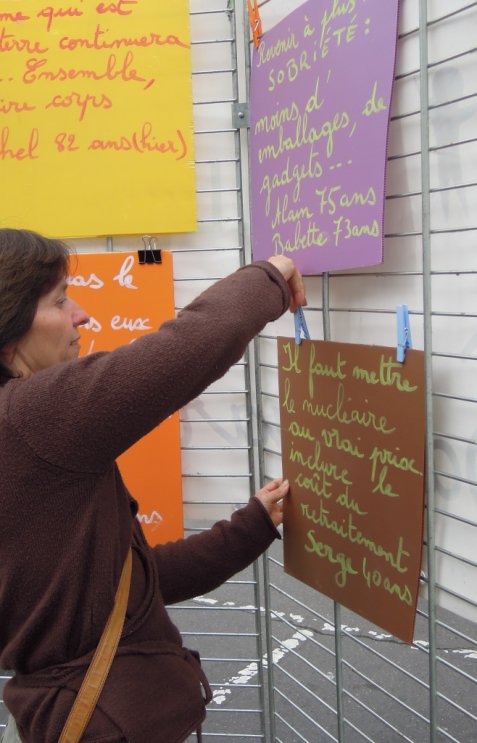 me qui est
terre continuera
Ensemble,
ire corps
hel 82 ans (hier)
Revenir à plus
SOBRIÉTÉ :
moins d'
emballages, de
gadgets...
Alain 75 ans
Babette 73 ans
as le
s eux
ns
Il faut mettre
le nucléaire
au vrai prix
inclure le
coût du
retraitement
Serge 40 ans